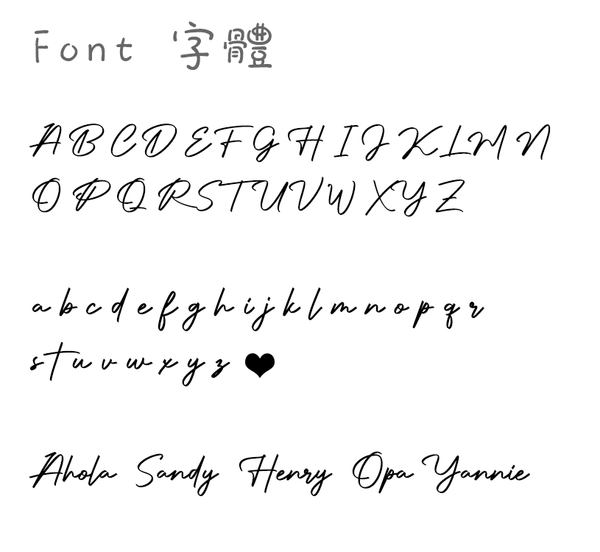 Font 字體
A B C D E F G H I J K L M N
O P Q R S T U V W X Y Z
a b c d e f g h i j k l m n o p q r
s t u v w x y z ♥
Ahola Sandy Henry Opa Yannie